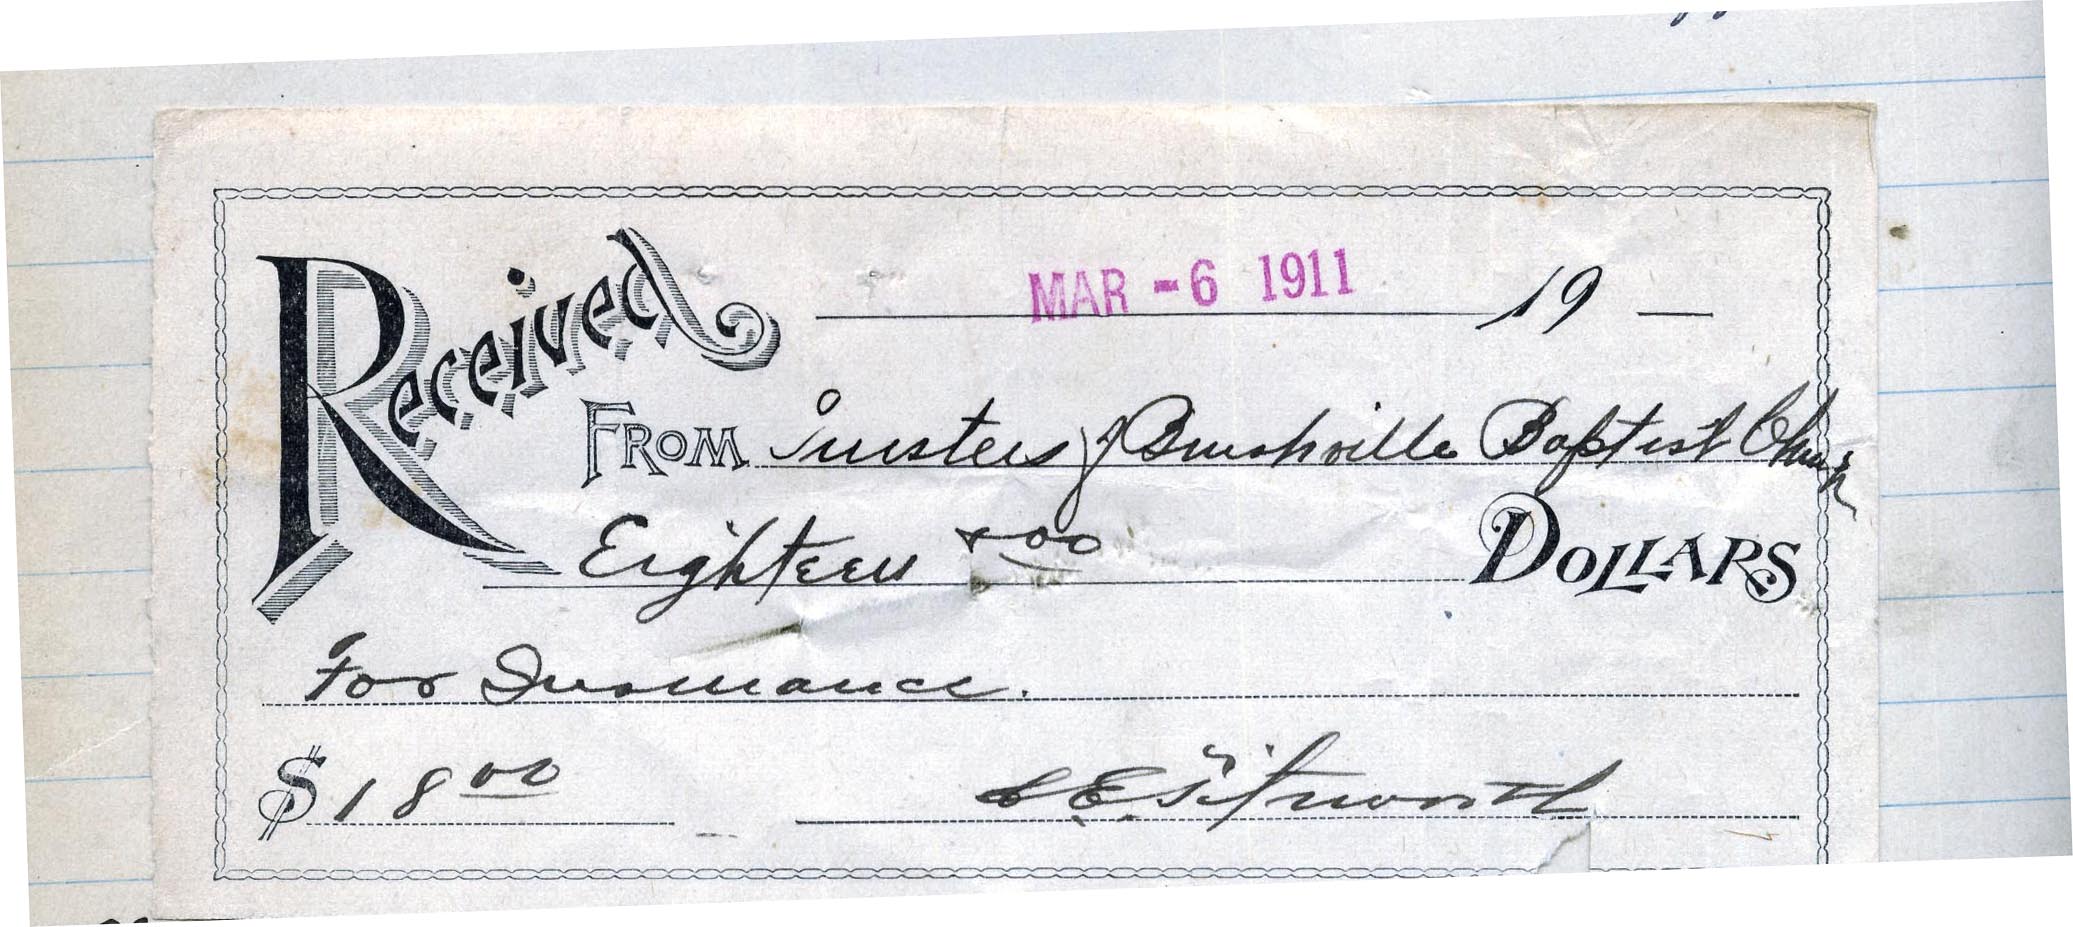 MAR - 6 1911 19
Received
FROM Trustees of Brushville Baptist Church
Eighteen & 00 DOLLARS
For Insurance.
$ 18 00 C. E. Titsworth